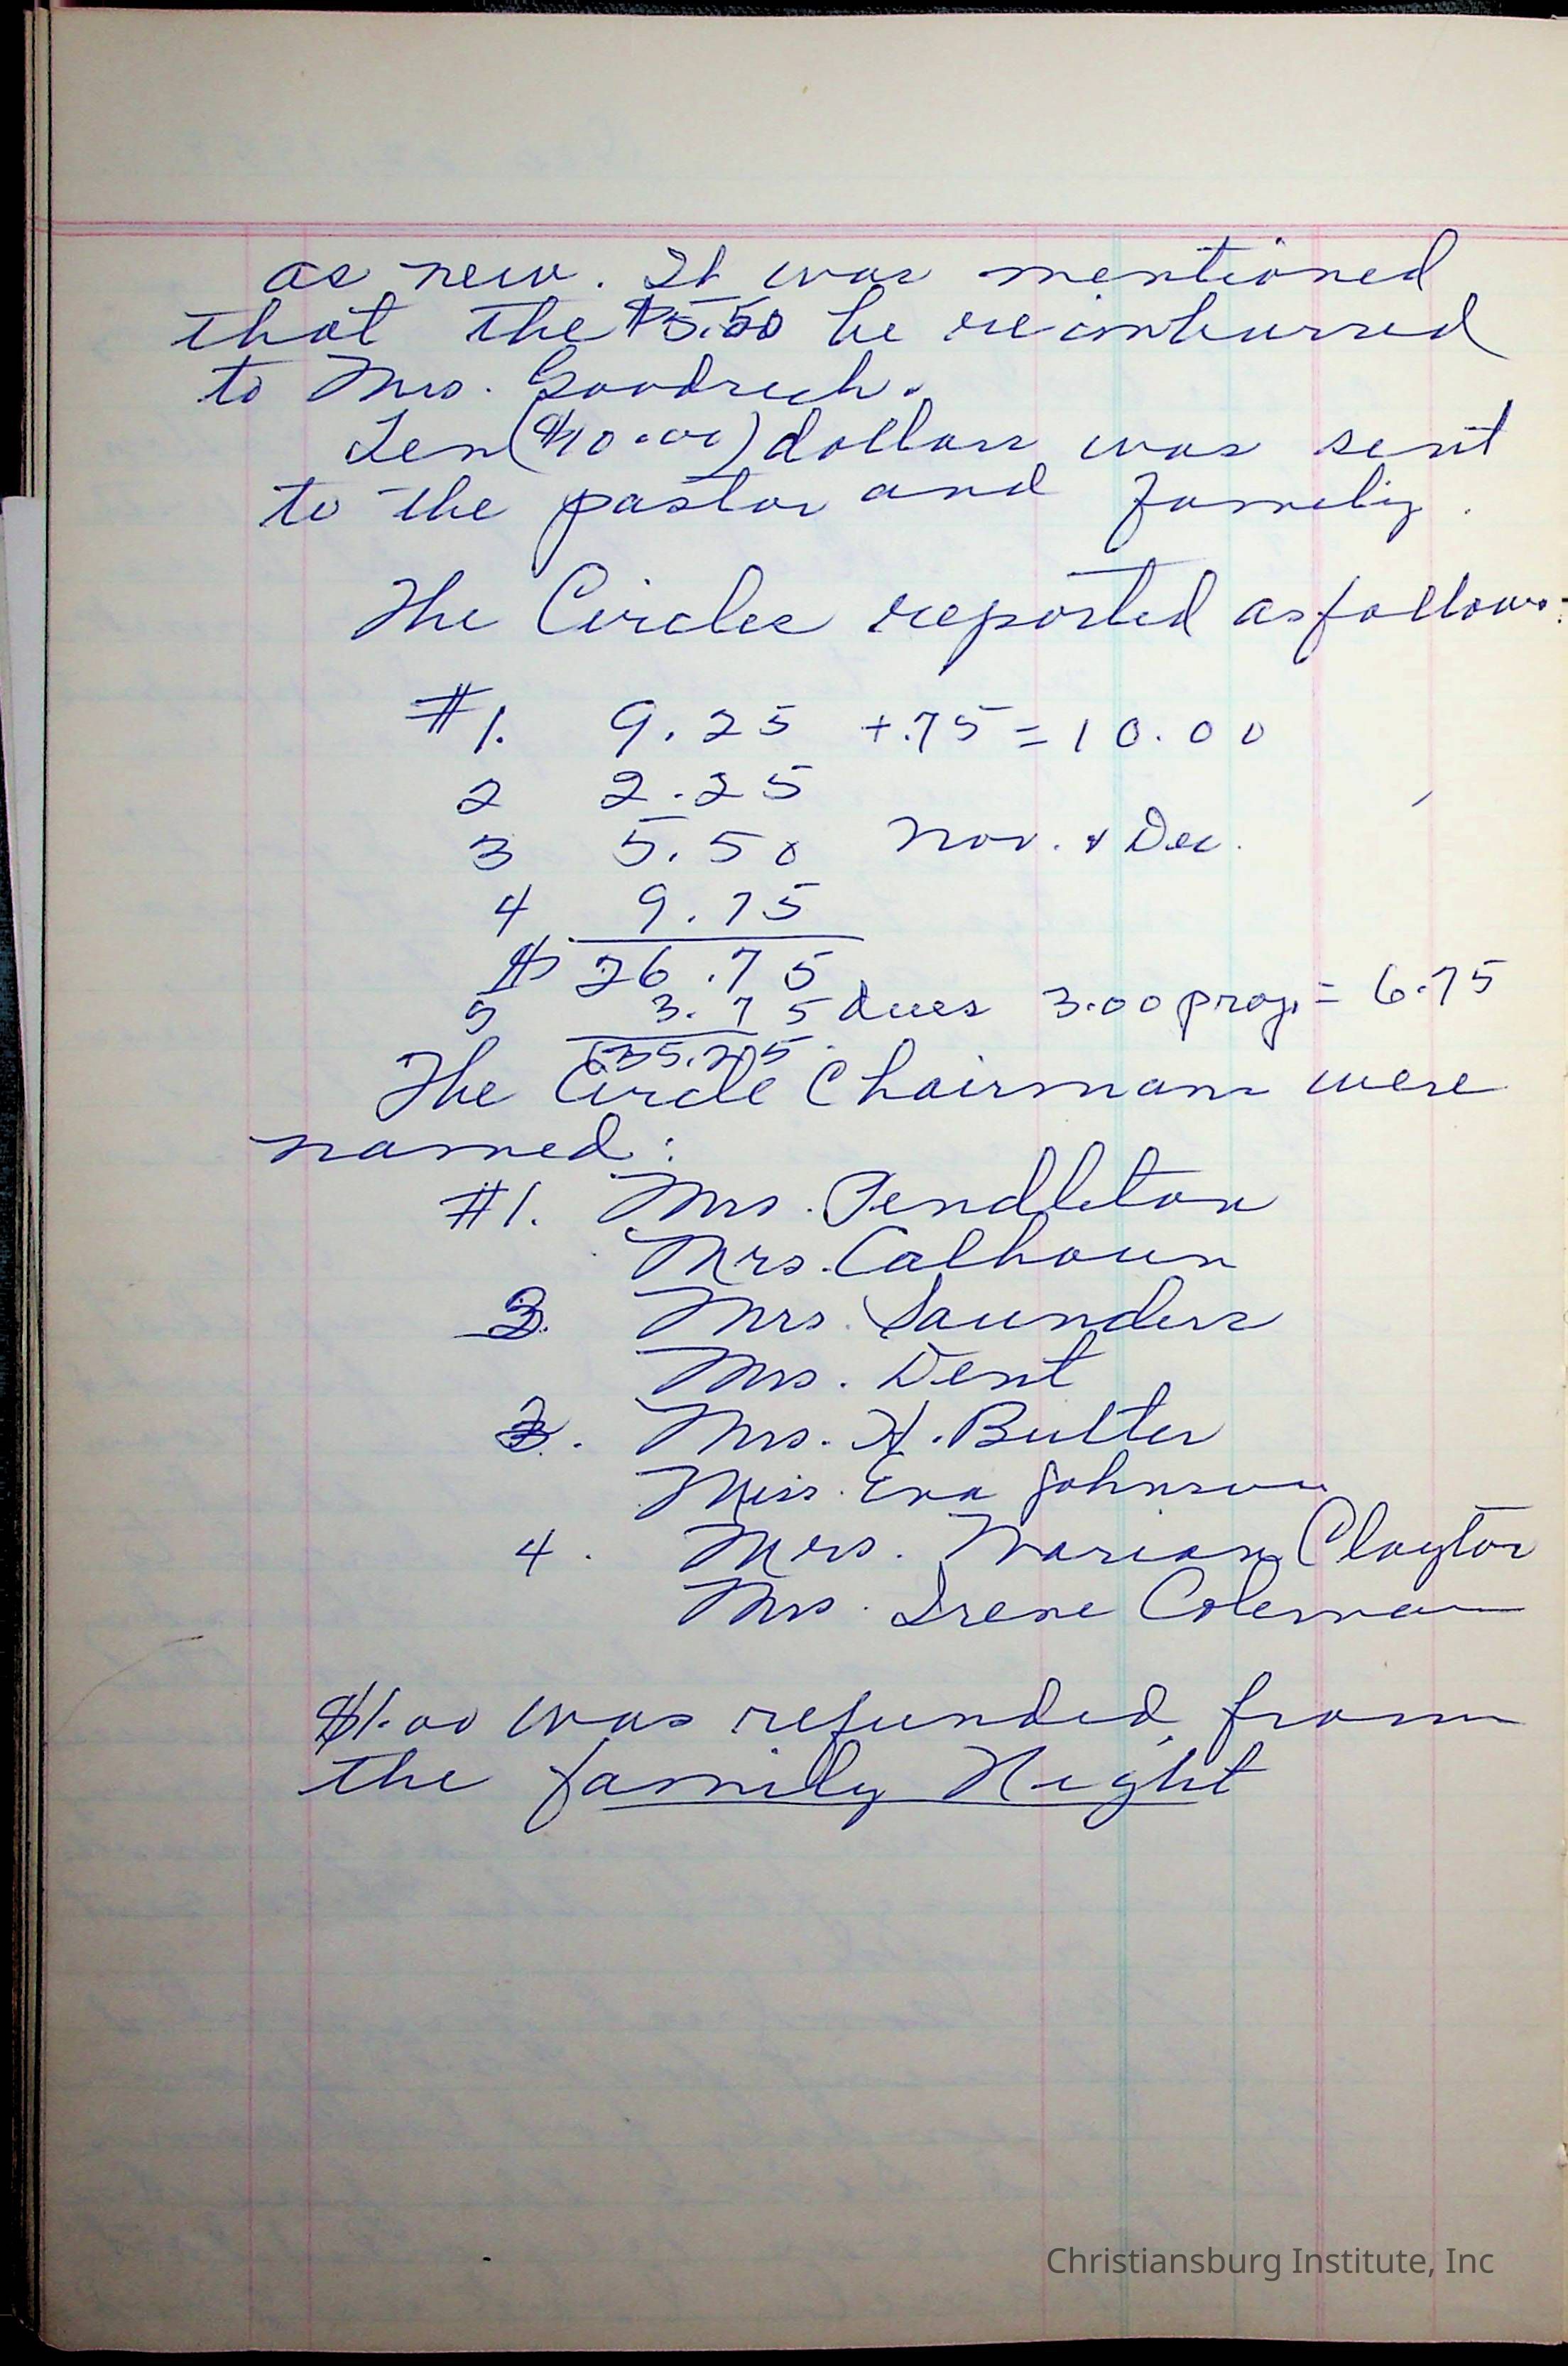 as new. It was mentioned
that the $5.50 be reimbursed
to Mrs. Goodrich.
Ten ($10.00) dollars was sent
to the pastor and family.
The Circles reported as follows:
#1. 9.25 + .75 = 10.00
2 2.25
3 5.50 Nov. & Dec.
4 9.75
$ 26.75
5 3.75 dues 3.00 proj. = 6.75
The Circle Chairmans were
named:
#1. Mrs. Pendleton
Mrs. Calhoun
Mrs. Saunders
Mrs. Dent
Mrs. H. Butler
Miss. Eva Johnson
4. Mrs. Marian Claytor
Mrs. Irene Coleman
$1.00 was refunded from
the family Night
Christiansburg Institute, Inc